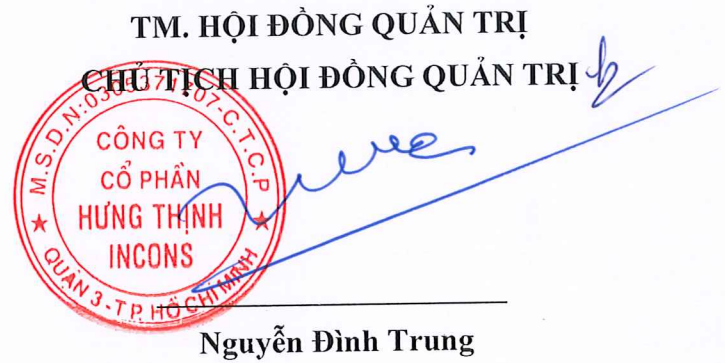 TM. HỘI ĐỒNG QUẢN TRỊ
CHỦ TỊCH HỘI ĐỒNG QUẢN TRỊ
M.S.D.N:0305371707-C.T.C.P
CÔNG TY
CỔ PHẦN
HƯNG THỊNH
INCONS
QUẬN 3-T.P. HỒ CHÍ MINH
Nguyễn Đình Trung